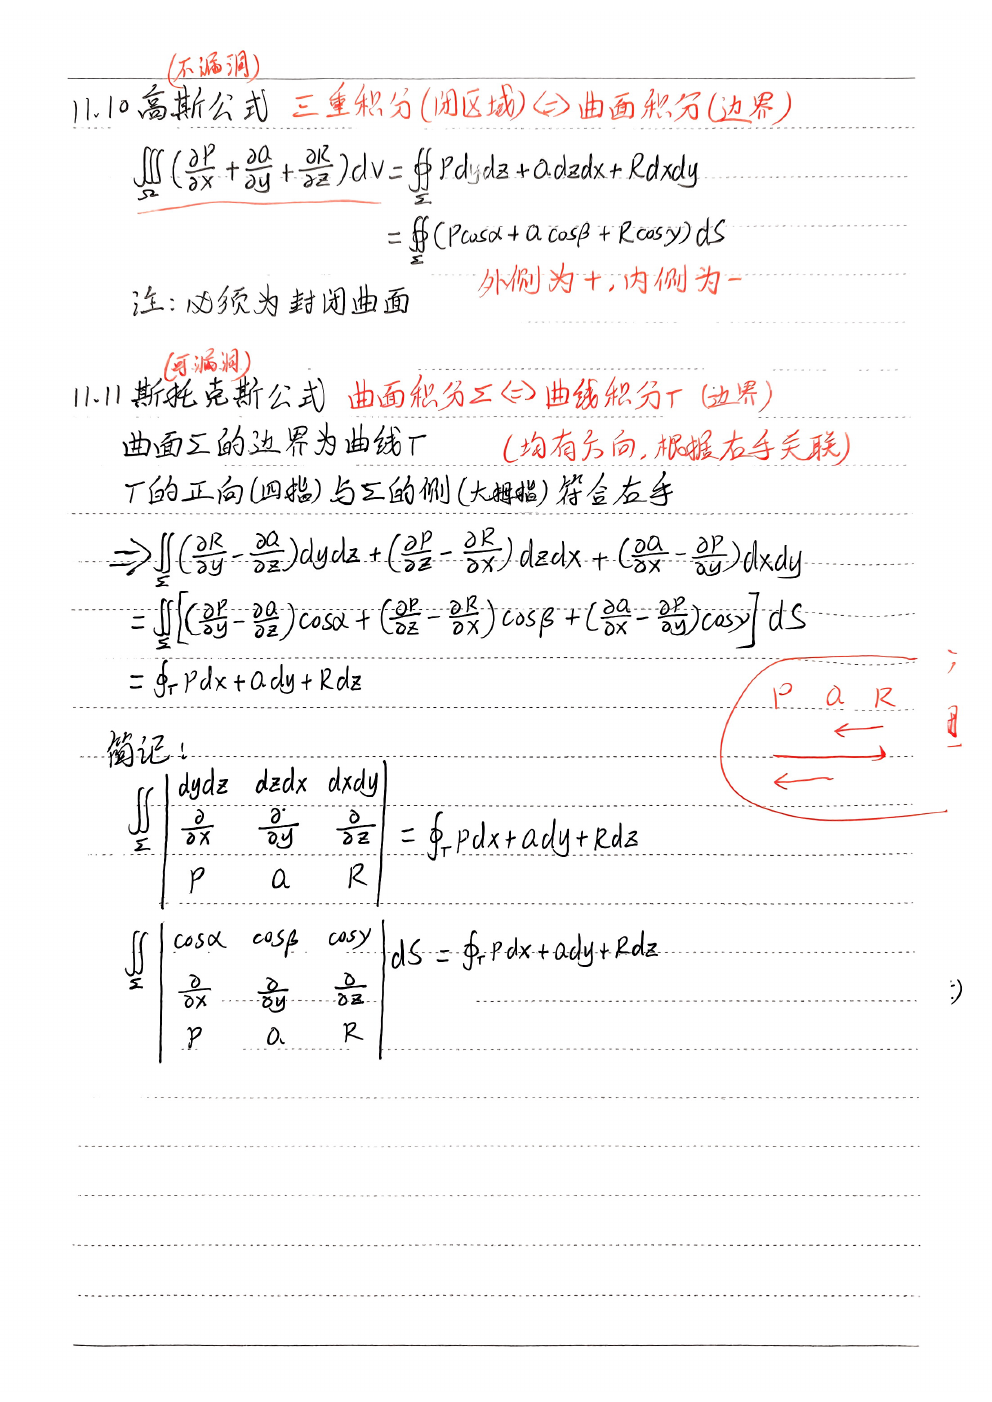 (不漏洞)
11.10 高斯公式 三重积分(闭区域)<=>曲面积分(边界)
∭_Ω (∂P/∂x + ∂Q/∂y + ∂R/∂z) dV = ∯_Σ Pdydz + Qdzdx + Rdxdy
= ∯_Σ (Pcosα + Qcosβ + Rcosγ) dS
外侧为+，内侧为-
注：必须为封闭曲面
(可漏洞)
11.11 斯托克斯公式 曲面积分Σ<=>曲线积分Γ (边界)
曲面Σ的边界为曲线Γ (均有方向，根据右手关联)
Γ的正向(四指)与Σ的侧(大拇指)符合右手
=> ∬_Σ (∂R/∂y - ∂Q/∂z) dydz + (∂P/∂z - ∂R/∂x) dzdx + (∂Q/∂x - ∂P/∂y) dxdy
= ∬_Σ [(∂P/∂y - ∂Q/∂z) cosα + (∂P/∂z - ∂R/∂x) cosβ + (∂Q/∂x - ∂P/∂y) cosγ] dS
= ∮_Γ Pdx + Qdy + Rdz
P Q R
简记：
∬_Σ | dydz dzdx dxdy |
| ∂/∂x ∂/∂y ∂/∂z | = ∮_Γ Pdx + Qdy + Rdz
| P Q R |
∬_Σ | cosα cosβ cosγ | dS = ∮_Γ Pdx + Qdy + Rdz
| ∂/∂x ∂/∂y ∂/∂z |
| P Q R |